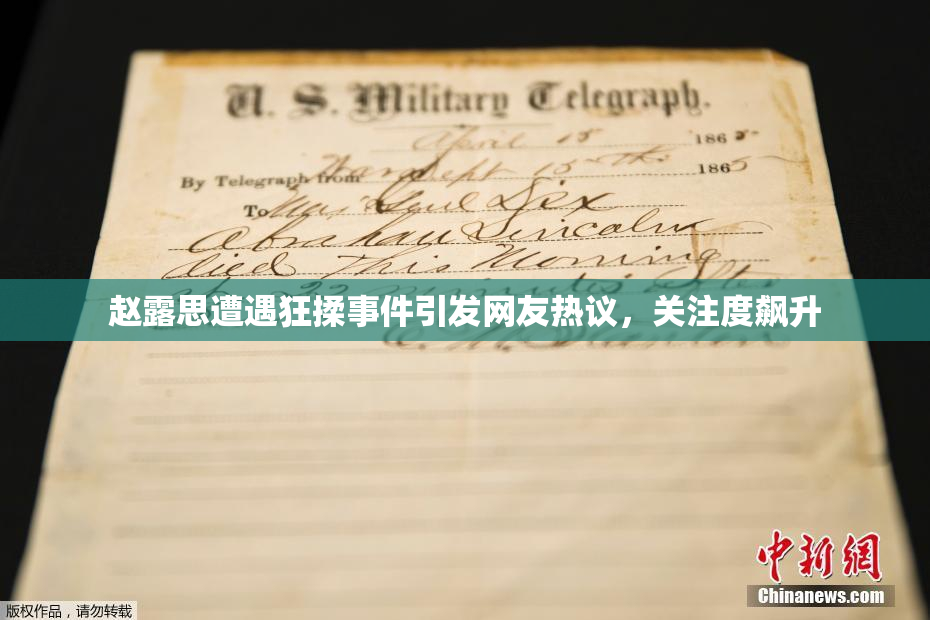 U. S. Military Telegraph.
April 15 1865
By Telegraph from War Dept 15th 1865
To Maj Genl Dix
Abraham Lincoln
died This Morning
22 minutes after
赵露思遭遇狂揉事件引发网友热议，关注度飙升
E. M. Stanton
中新网
Chinanews.com
版权作品，请勿转载